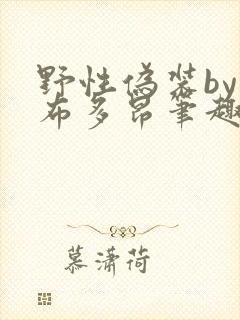 野性伪装by
布多昂笔趣
慕潇荷